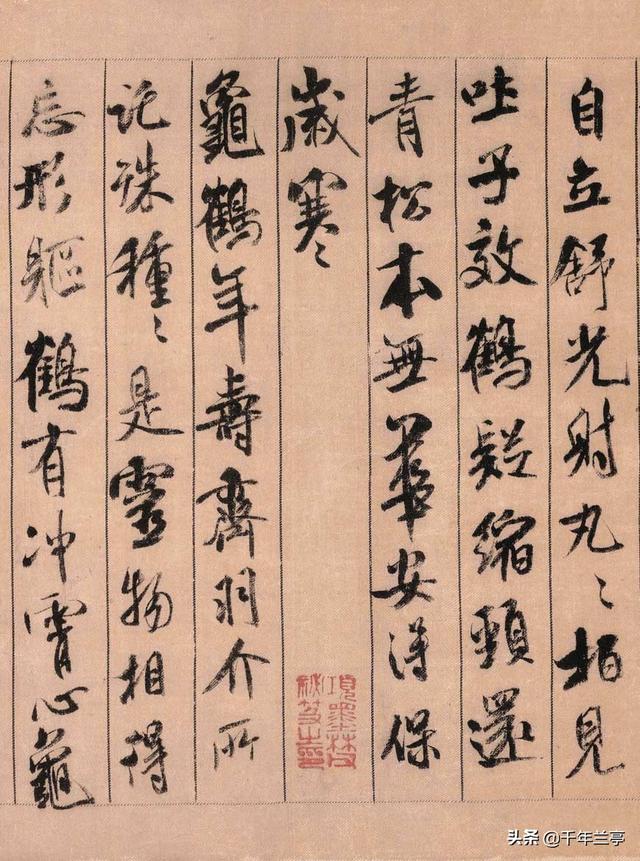 自立舒光射丸〻柏見
吐子效鶴疑縮頸還
青松本無華安得保
歲寒
龜鶴年壽齊羽介所
託殊種〻是靈物相得
忘形軀鶴有冲霄心龜
項墨林父
祕笈之印
头条 @千年兰亭